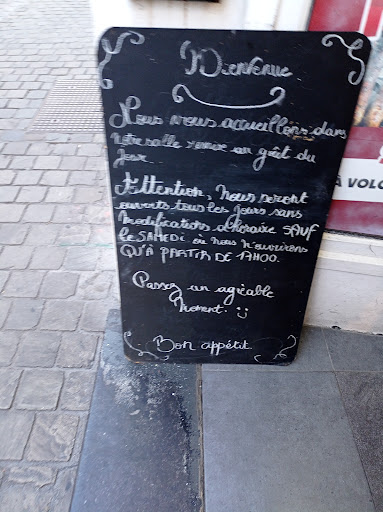 Bienvenue
Nous vous accueillons dans
notre salle rénovée au goût du
Jour.
Attention, Nous seront
ouverts tous les jours sans
modifications d'horaire SAUF
le SAMEDi où nous n'ouvrirons
QU'À PARTIR DE 17H00.
Passez un agréable
Moment. :)
Bon appétit
À VOLO